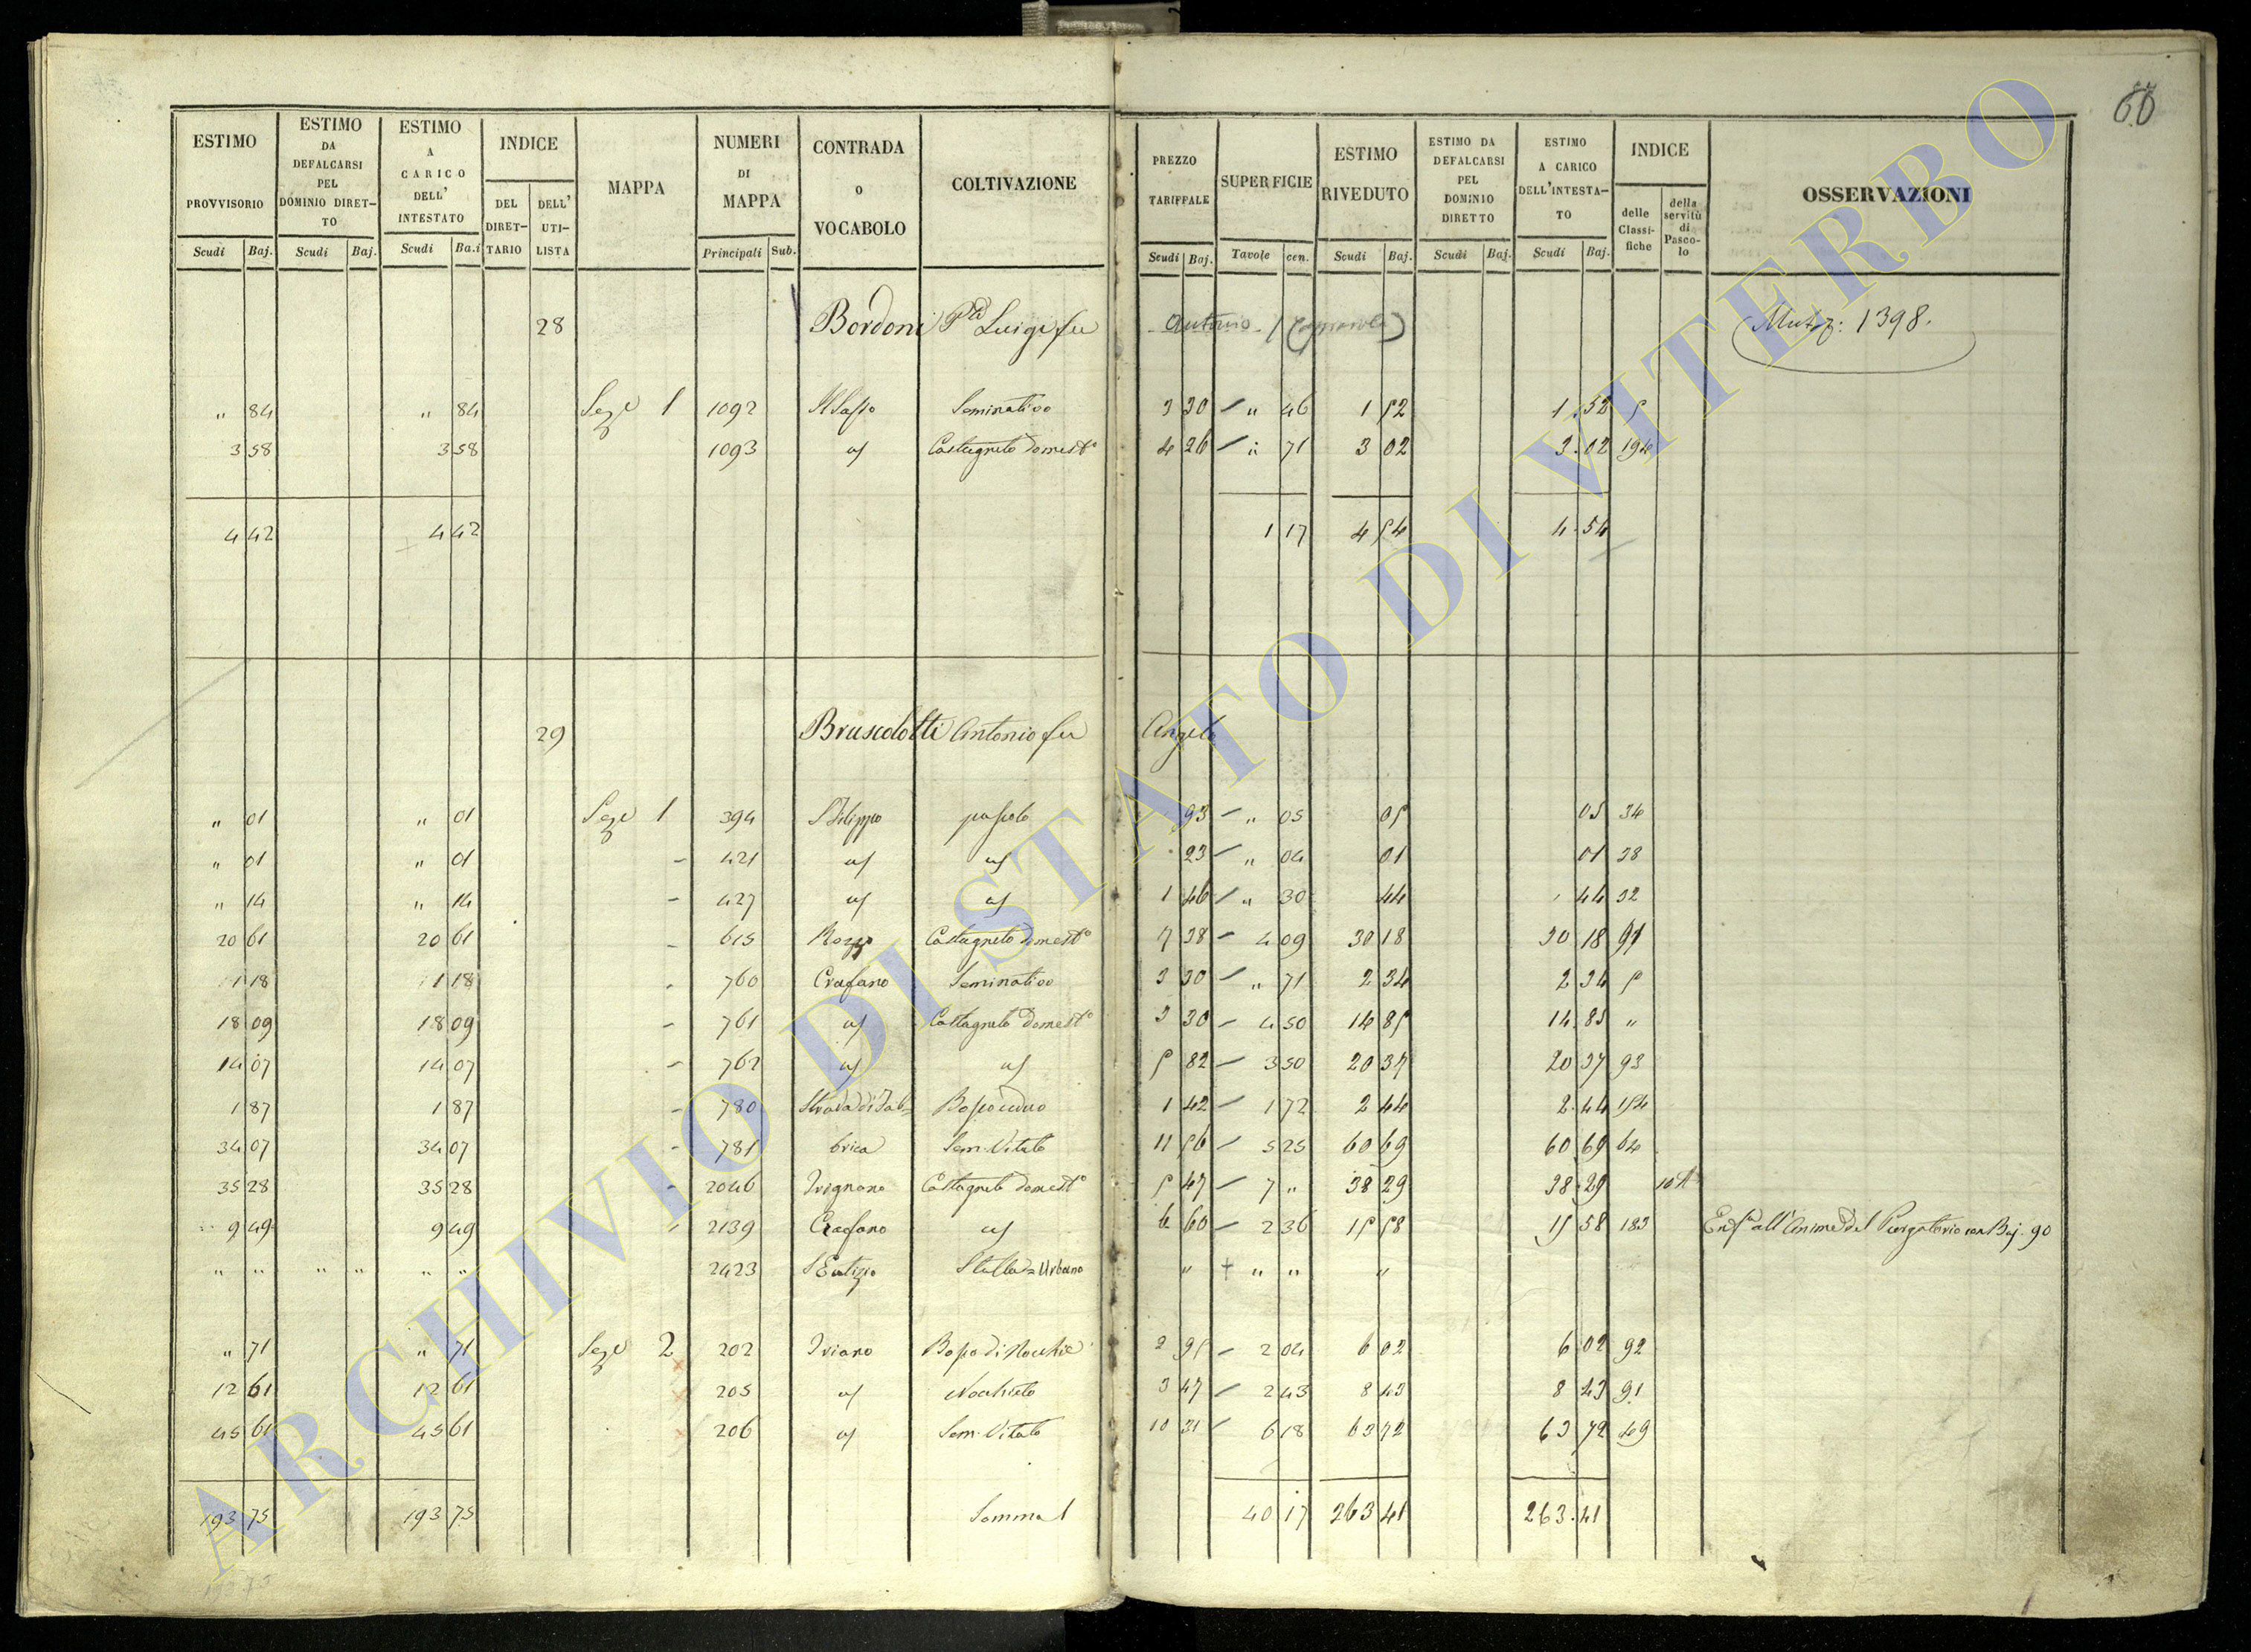 60
ESTIMO PROVVISORIO Scudi Baj.
ESTIMO DA DEFALCARSI PEL DOMINIO DIRETTO Scudi Baj.
ESTIMO A CARICO DELL' INTESTATO Scudi Ba.i
INDICE DEL DIRETTARIO DELL' UTILISTA
MAPPA
NUMERI DI MAPPA Principali Sub.
CONTRADA o VOCABOLO
COLTIVAZIONE
PREZZO TARIFFALE Scudi Baj.
SUPERFICIE Tavole cen.
ESTIMO RIVEDUTO Scudi Baj.
ESTIMO DA DEFALCARSI PEL DOMINIO DIRETTO Scudi Baj.
ESTIMO A CARICO DELL'INTESTATO Scudi Baj.
INDICE delle Classifiche della servitù di Pascolo
OSSERVAZIONI
28 Bordoni Luigi fu Antonio 1398.
" 84 " 84 Seze 1 1092 Il Sasso Seminativo 3 30 " 46 1 52 1.52 5
3 58 3 58 1093 as Castagneto Domest° 4 26 " 71 3 02 3.02 194
4 42 4 42 1 17 4 54 4.54
29 Bruscolotti Antonio fu Angelo
" 01 " 01 Seze 1 394 S Filippo pascolo 93 " 05 05 05 34
" 01 " 01 - 421 as as 23 " 04 01 01 38
" 14 " 14 - 427 as as 1 46 " 30 44 44 32
20 61 20 61 - 615 Rozzo Castagneto Domest° 7 38 4 09 30 18 30 18 91
1 18 1 18 - 760 Crafano Seminativo 3 30 " 71 2 34 2 34 5
18 09 18 09 - 761 as Castagneto Domest° 3 30 4 50 14 85 14.85 "
14 07 14 07 - 762 as as 5 82 3 50 20 37 20 37 93
1 87 1 87 - 780 Strada di Fab= Bosco ceduo 1 42 1 72 2 44 2.44 154
34 07 34 07 - 781 brica Sem. Vitato 11 56 5 25 60 69 60 69 64
35 28 35 28 - 2046 Trignano Castagneto Domest° 5 47 7 " 38 29 38.29
9 49 9 49 - 2139 Crafano as 6 60 2 36 15 58 15 58 183 all'Anime del Purgatorio con Baj. 90
" " " " " " 2423 S Eutizio Stalla = Urbano " + " " "
" 71 " 71 Seze 2 202 Triano Bosco di Nocchie 2 95 2 04 6 02 6 02 92
12 61 12 61 205 as Nocchieto 3 47 2 43 8 43 8 43 91
45 61 45 61 206 as Sem. Vitato 10 31 6 18 63 72 63 72 49
193 75 193 75 Somma 40 17 263 41 263.41
ARCHIVIO DI STATO DI VITERBO